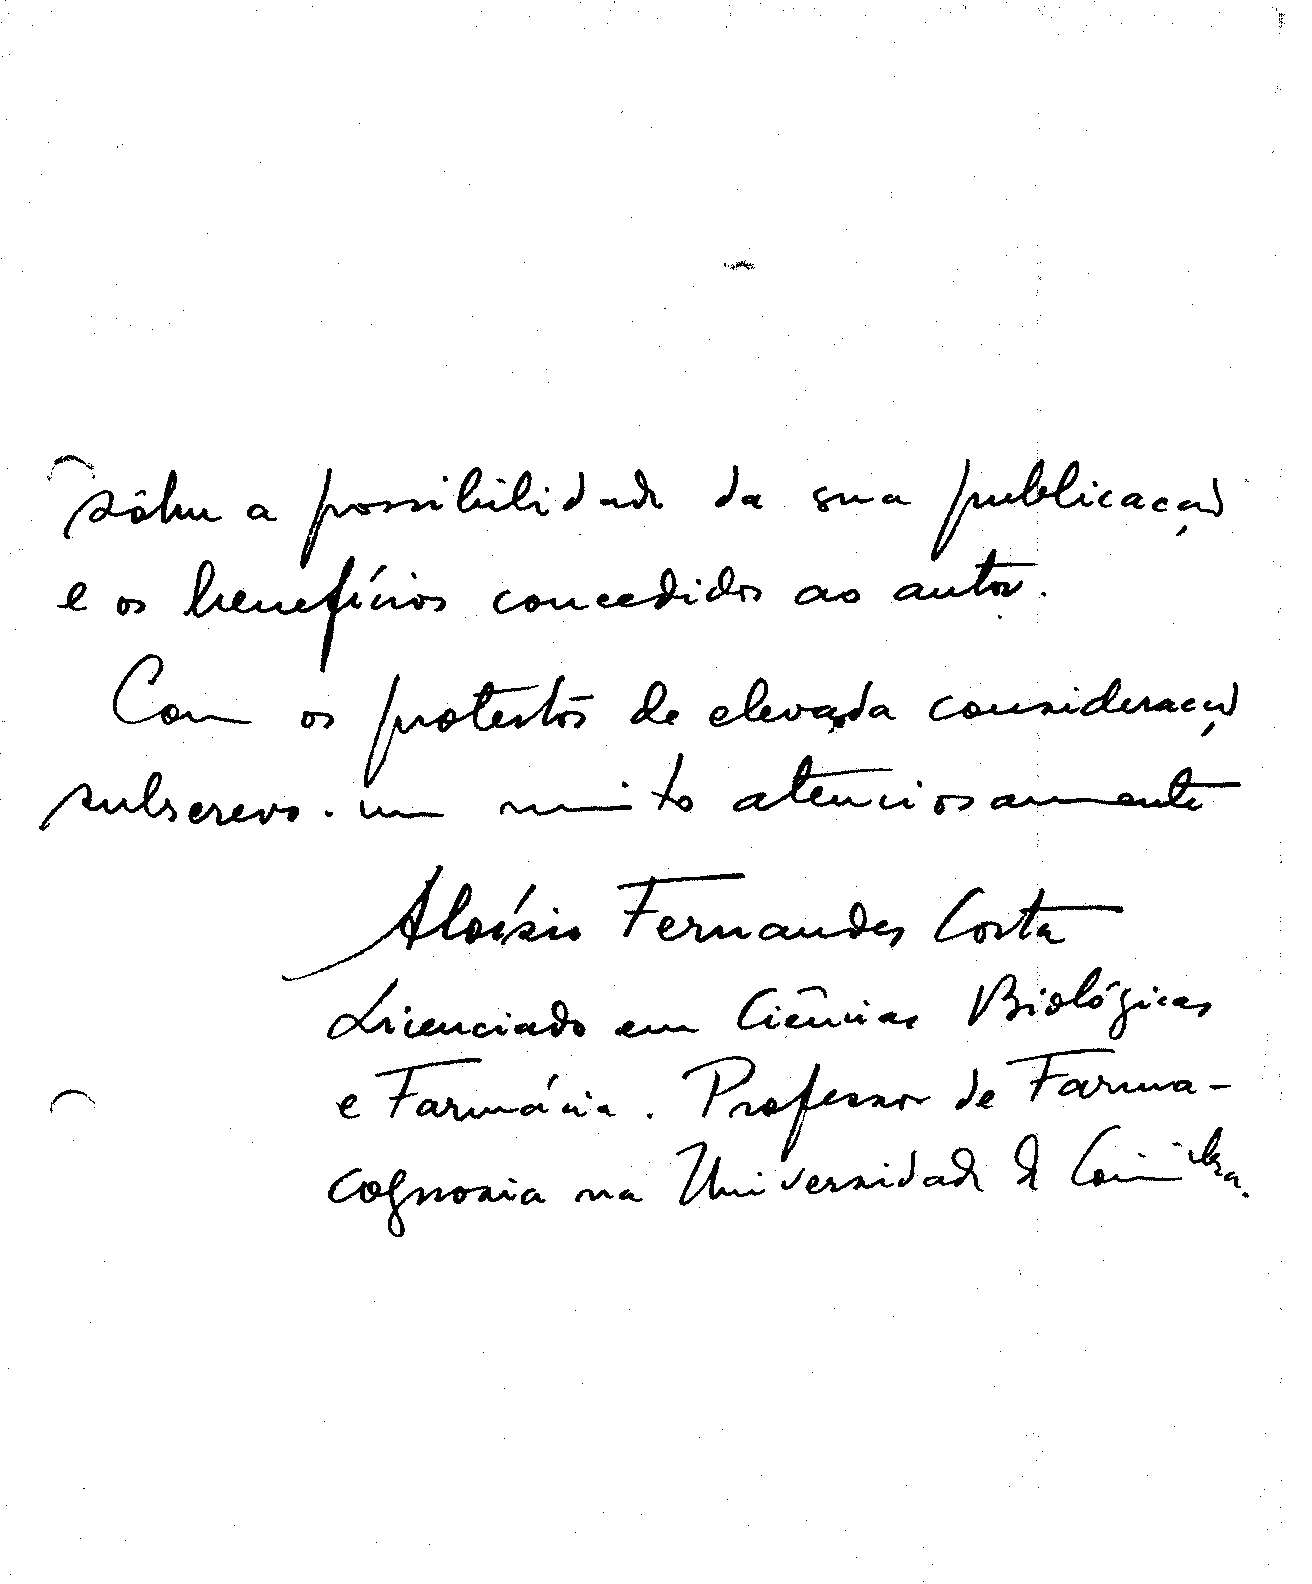 sôbre a possibilidade da sua publicação
e os benefícios concedidos ao autor.
Com os protestos de elevada consideração
subscrevo-me muito atenciosamente
Aloísio Fernandes Costa
Licenciado em Ciências Biológicas
e Farmácia. Professor de Farma-
cognosia na Universidade de Coimbra.